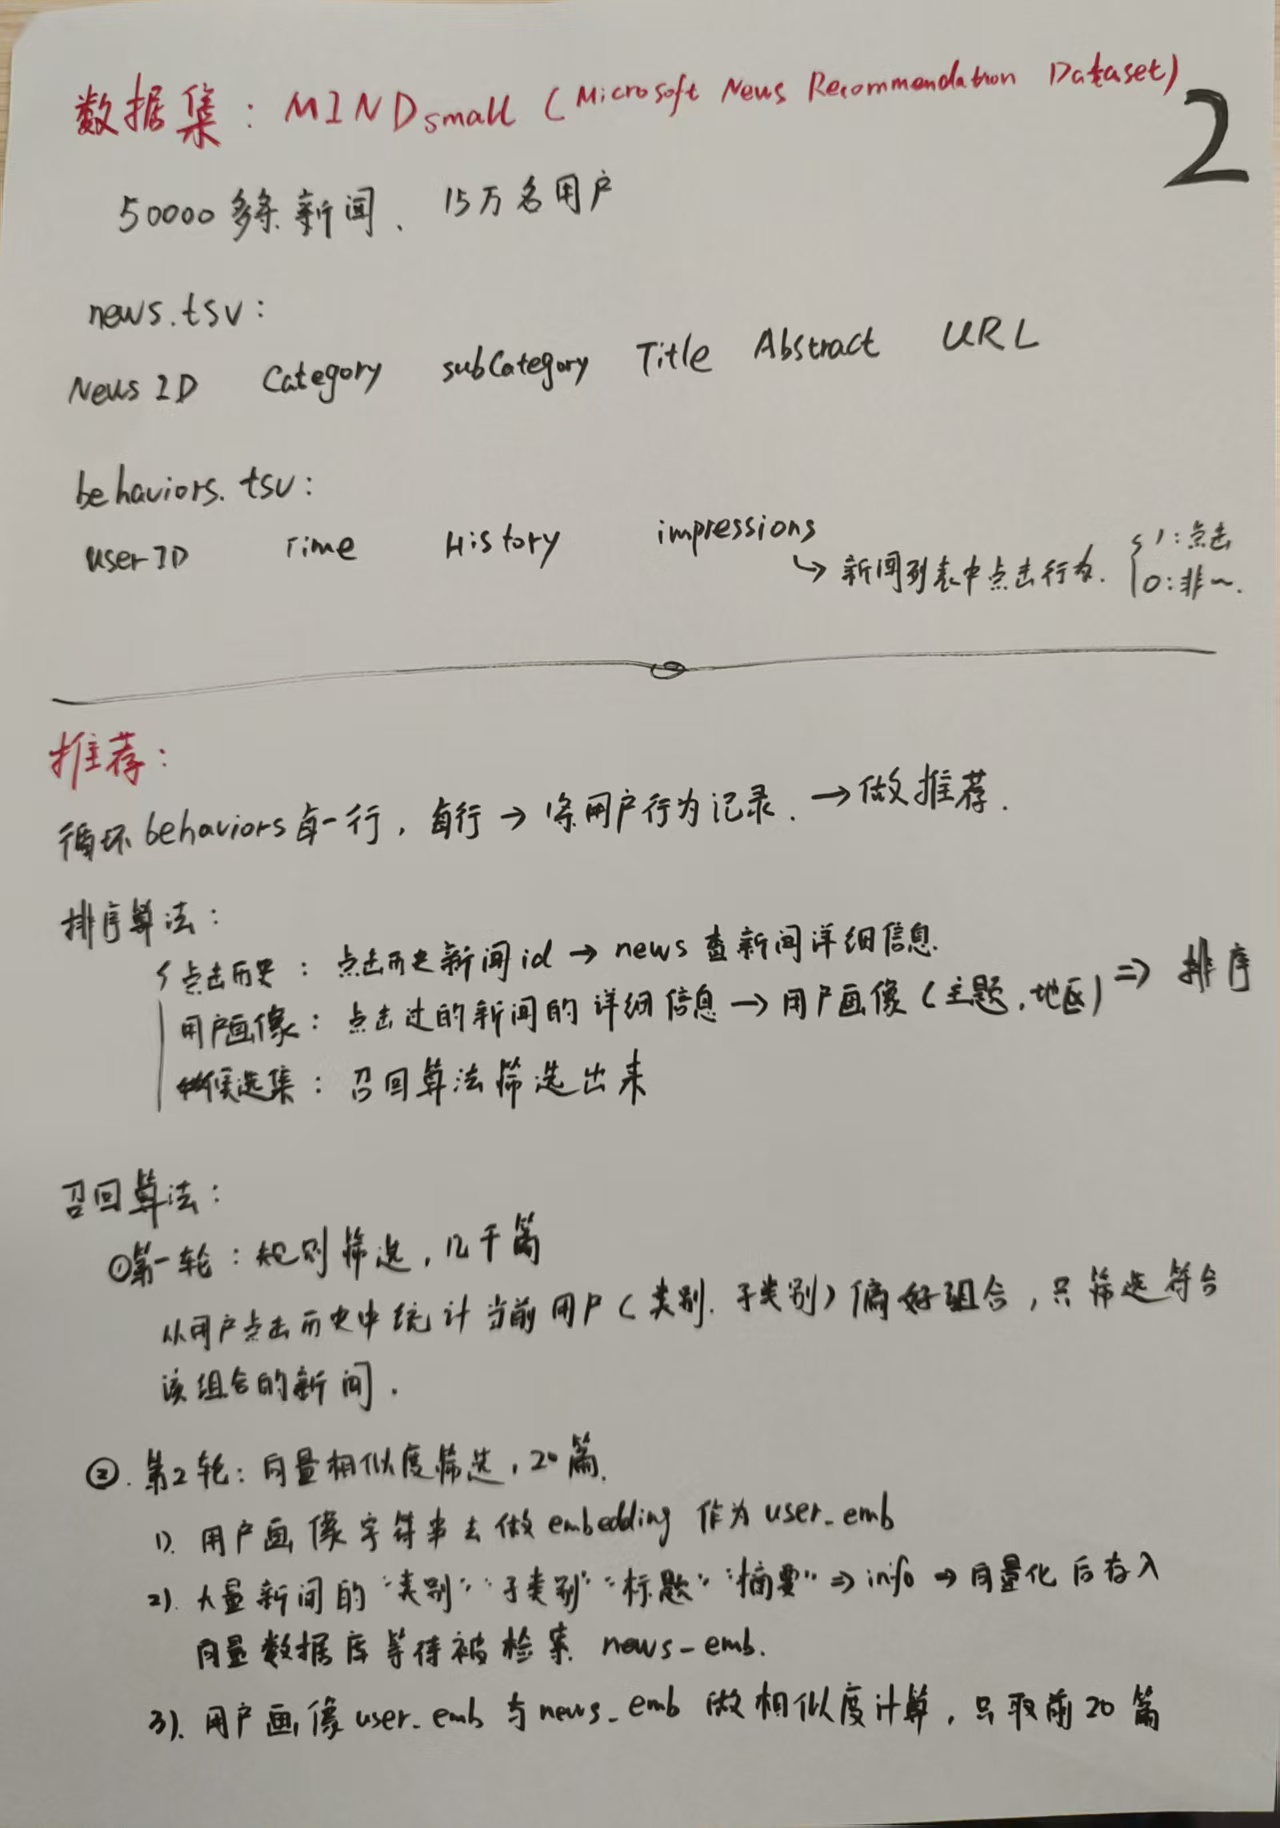 数据集：MINDsmall（Microsoft News Recommendation Dataset）
2
50000多条新闻、15万名用户
news.tsv：
News ID Category subCategory Title Abstract URL
behaviors.tsv：
userID Time History impressions
↳ 新闻列表中点击行为. { 1：点击
0：非～.
推荐：
循环behaviors每一行，每行→条用户行为记录.→做推荐.
排序算法：
点击历史：点击历史新闻id→news查新闻详细信息.
用户画像：点击过的新闻的详细信息→用户画像（主题.地区）⇒ 排序
候选集：召回算法筛选出来
召回算法：
①第一轮：规则筛选，几千篇
从用户点击历史中统计当前用户（类别.子类别）偏好组合，只筛选符合
该组合的新闻.
②.第2轮：向量相似度筛选，20篇.
1).用户画像字符串去做embedding作为user_emb
2).大量新闻的“类别”“子类别”“标题”“摘要”⇒info⇒向量化后存入
向量数据库等待被检索.news_emb.
3).用户画像user_emb与news_emb做相似度计算，只取前20篇